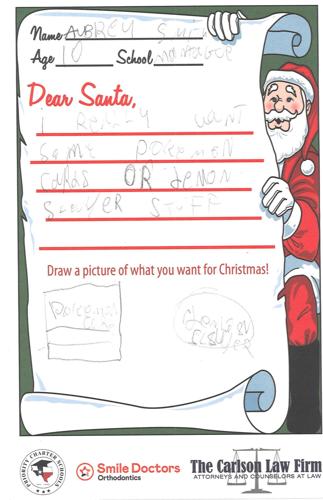 Name AUBREY
Age 10 School
Dear Santa,
i REALLY WANT
SOME POKEMON
CARDS OR DEMON
SLAYER STUFF
Draw a picture of what you want for Christmas!
POKEMON
PRIORITY CHARTER SCHOOLS
Smile Doctors
Orthodontics
The Carlson Law Firm
ATTORNEYS AND COUNSELORS AT LAW